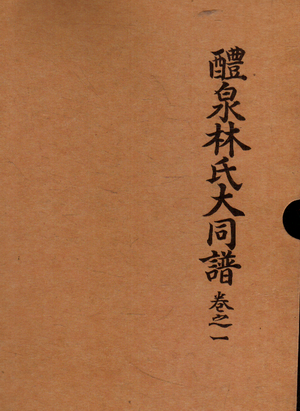 醴泉林氏大同譜 卷之一